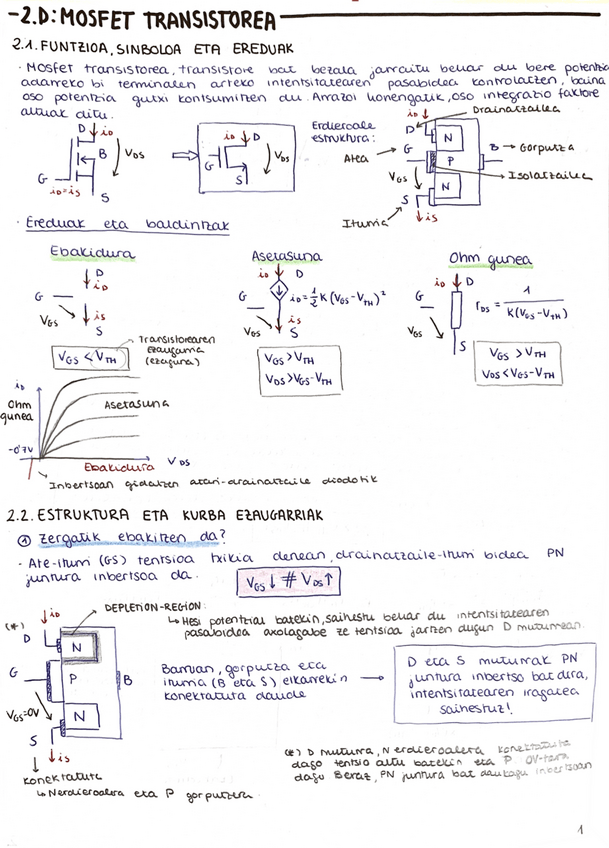 -2.D: MOSFET TRANSISTOREA
2.1. FUNTZIOA, SINBOLOA ETA EREDUAK
· Mosfet transistorea, transistore bat bezala jarraitu behar du bere potentzia
adarreko bi terminalen arteko intentsitatearen pasabidea kontrolatzen, baina
oso potentzia gutxi kontsumitzen du. Arrazoi honengatik, oso integrazio faktore
altuak ditu.
D iD
B
VDS
G
iD=iS
S
iD D
G
S
VDS
Erdieroale
estruktura:
iD
Drainatzailea
D
N
Atea
G
P
B → Gorputza
VGS
Isolatzailea
N
S
Iturria
iS
· Ereduak eta baldintzak
Ebakidura
D
iD
G
VGS
iS
S
VGS < VTH
Transistorearen
ezaugarria
(ezaguna)
Asetasuna
iD D
G
iD = 1/2 K (VGS - VTH)²
VGS
iS
S
VGS > VTH
VDS > VGS - VTH
Ohm gunea
iD D
G
rDS = 1 / K(VGS - VTH)
VGS
S
VGS > VTH
VDS < VGS - VTH
iD
Ohm
gunea
Asetasuna
-0'7V
Ebakidura VDS
Inbertsoan gidatzen atari-drainatzaile diodotik
2.2. ESTRUKTURA ETA KURBA EZAUGARRIAK
① Zergatik ebakitzen da?
· Ate-iturri (GS) tentsioa txikia denean, drainatzaile-iturri bidea PN
juntura inbertsoa da.
VGS↓ # VDS↑
DEPLETION-REGION:
↳ Hesi potentzial batekin, saihestu behar du intentsitatearen
pasabidea axolagabe ze tentsioa jartzen dugun D muturrean.
(*)
iD
D
N
G
P
B
VGS=0V
N
S
iS
konektatuta
↳ N erdieroalera eta P gorputzera.
Barruan, gorputza eta
iturria (B eta S) elkarrekin
konektatuta daude
D eta S muturrak PN
juntura inbertso bat dira,
intentsitatearen iragatea
saihestuz!
(*) D muturra, N erdieroalera konektatuta
dago tentsio altu batekin eta P 0V-tara
dago. Beraz, PN juntura bat daukagu inbertsoan
1